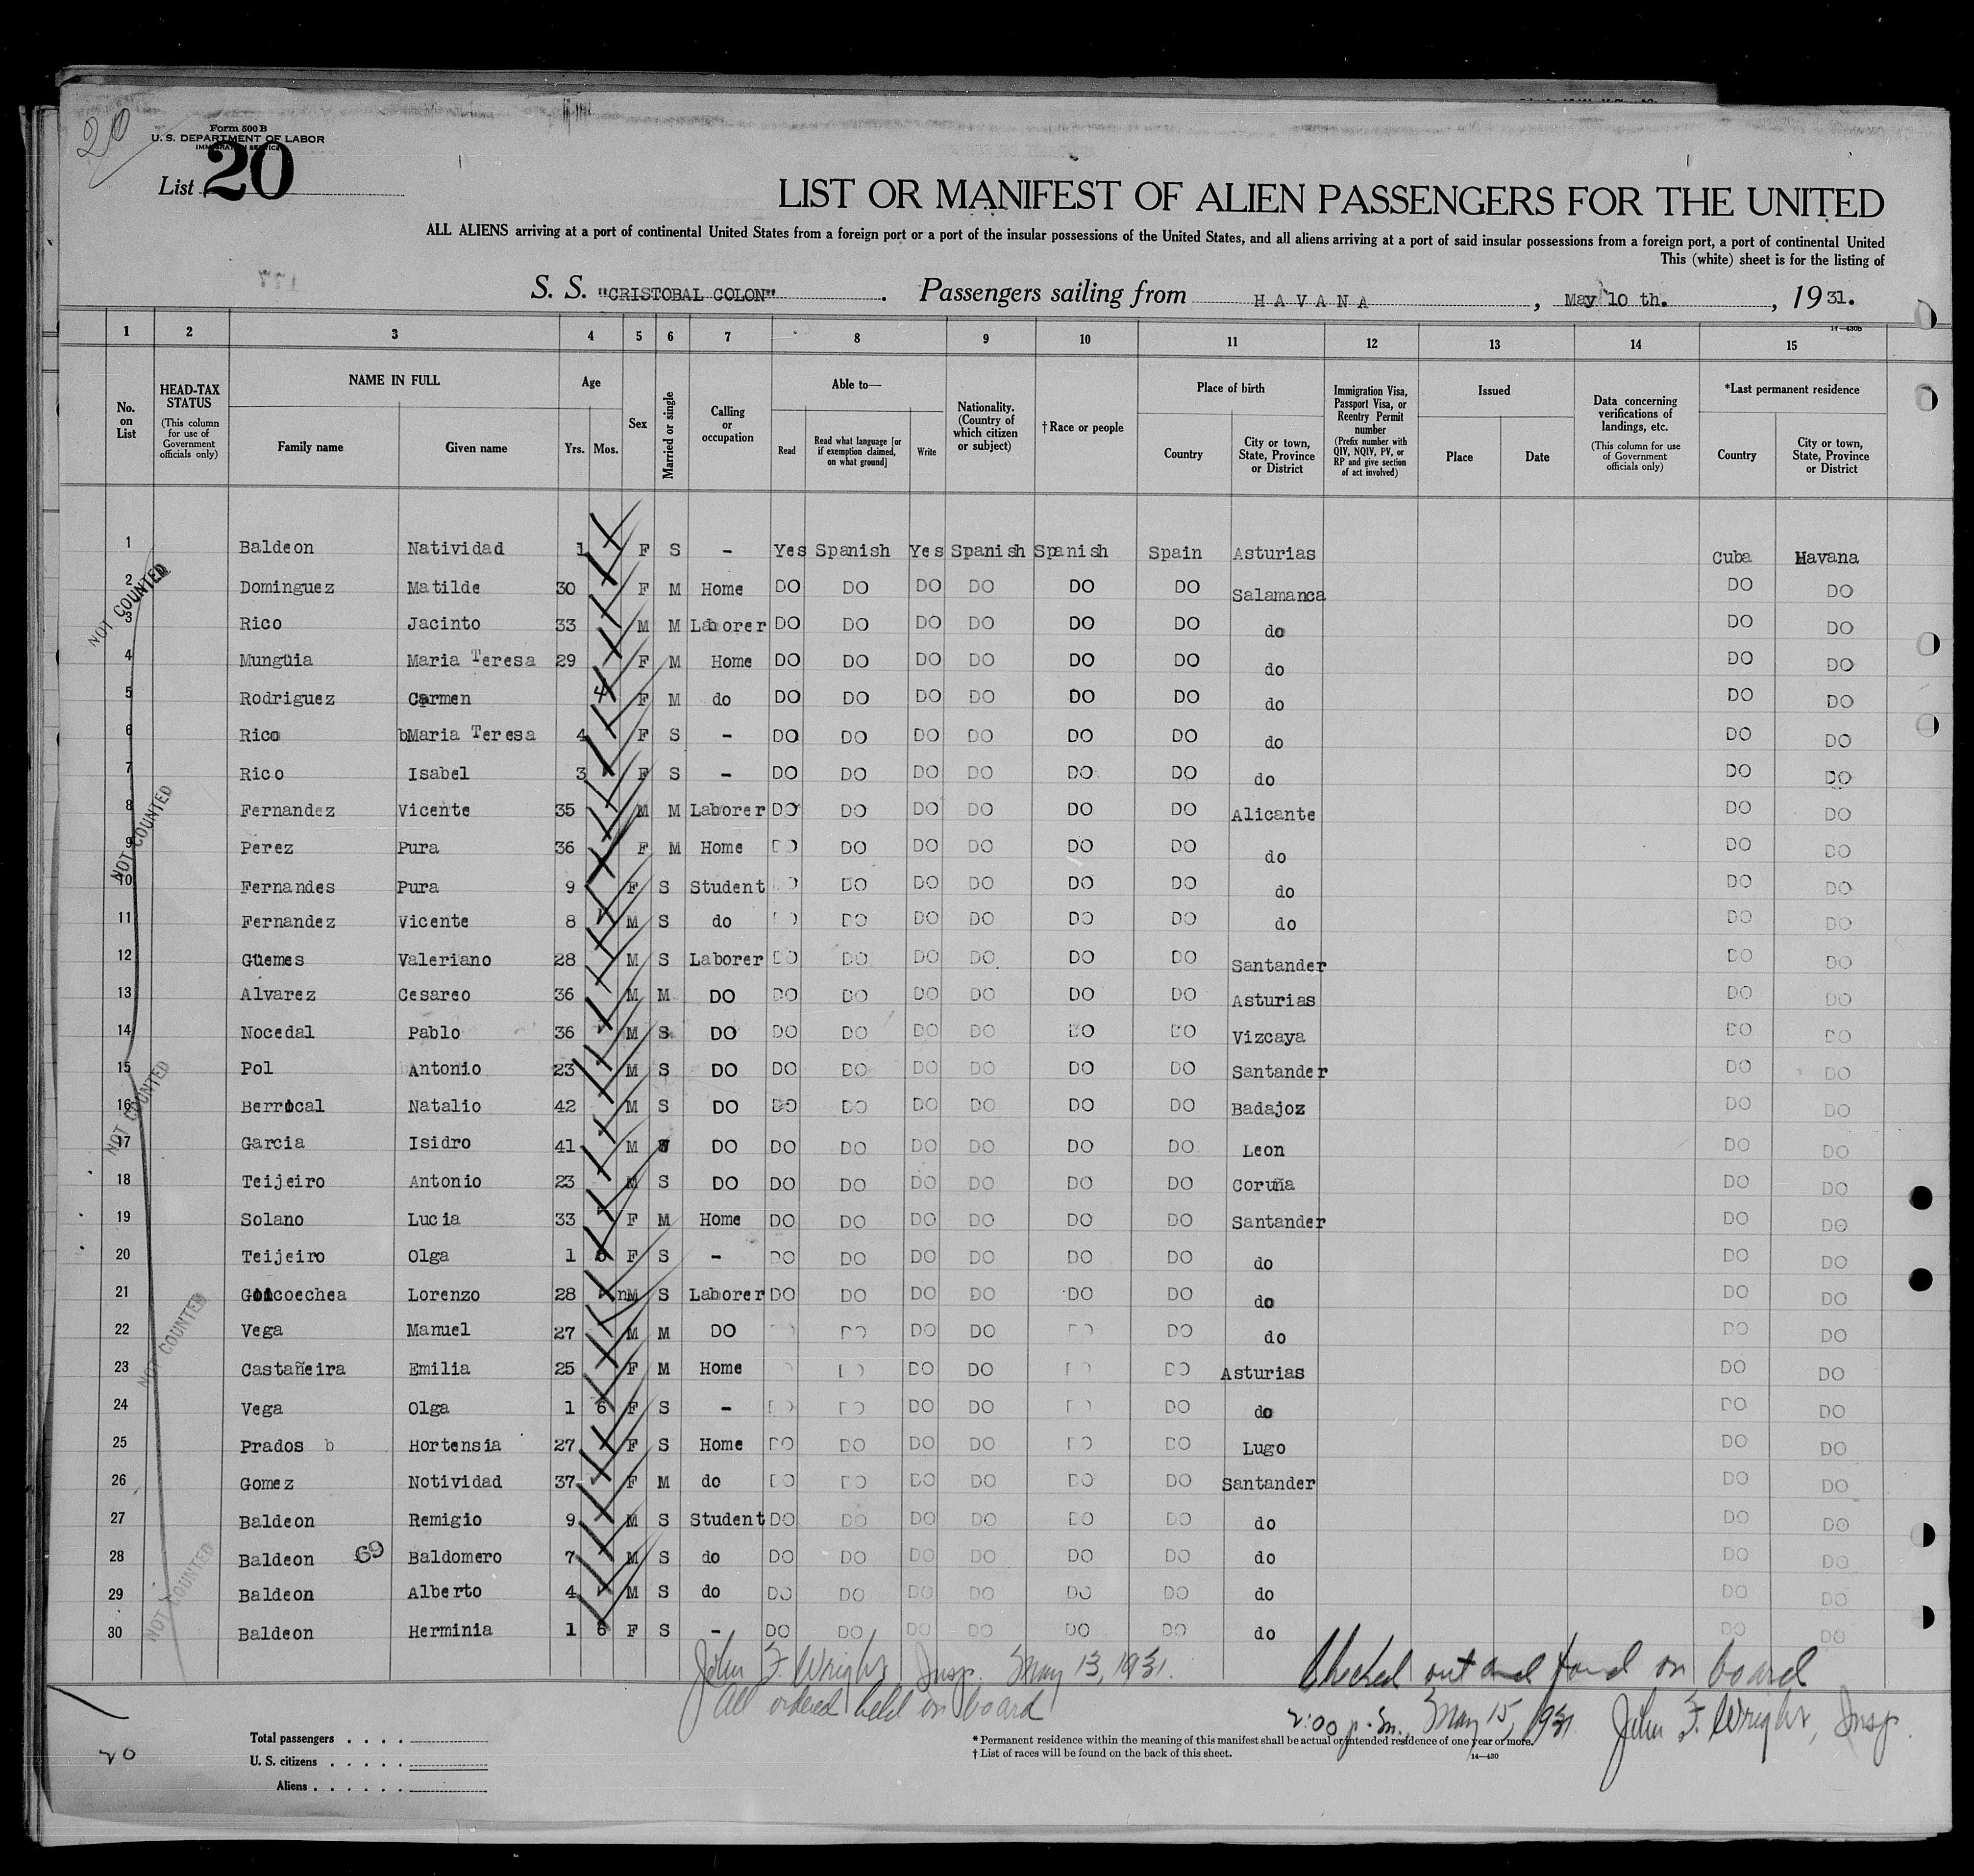 20
Form 500 B
U. S. DEPARTMENT OF LABOR
IMMIGRATION SERVICE
List 20
LIST OR MANIFEST OF ALIEN PASSENGERS FOR THE UNITED
ALL ALIENS arriving at a port of continental United States from a foreign port or a port of the insular possessions of the United States, and all aliens arriving at a port of said insular possessions from a foreign port, a port of continental United
This (white) sheet is for the listing of
177
S. S. "CRISTOBAL COLON". Passengers sailing from HAVANA, May 10 th., 1931.
14—430B
1 2 3 4 5 6 7 8 9 10 11 12 13 14 15
No. on List
HEAD-TAX STATUS (This column for use of Government officials only)
NAME IN FULL Family name Given name
Age Yrs. Mos.
Sex
Married or single
Calling or occupation
Able to— Read Read what language [or if exemption claimed, on what ground] Write
Nationality. (Country of which citizen or subject)
†Race or people
Place of birth Country City or town, State, Province or District
Immigration Visa, Passport Visa, or Reentry Permit number (Prefix number with QIV, NQIV, PV, or RP and give section of act involved)
Issued Place Date
Data concerning verifications of landings, etc. (This column for use of Government officials only)
*Last permanent residence Country City or town, State, Province or District
1 Baldeon Natividad 1 F S - Yes Spanish Yes Spanish Spanish Spain Asturias Cuba Havana
2 Dominguez Matilde 30 F M Home DO DO DO DO DO DO Salamanca DO DO
3 Rico Jacinto 33 M M Laborer DO DO DO DO DO DO do DO DO
4 Mungüia Maria Teresa 29 F M Home DO DO DO DO DO DO do DO DO
5 Rodriguez Carmen F M do DO DO DO DO DO DO do DO DO
6 Rico bMaria Teresa 4 F S - DO DO DO DO DO DO do DO DO
7 Rico Isabel 3 F S - DO DO DO DO DO DO do DO DO
8 Fernandez Vicente 35 M M Laborer DO DO DO DO DO DO Alicante DO DO
9 Perez Pura 36 F M Home DO DO DO DO DO DO do DO DO
10 Fernandes Pura 9 F S Student DO DO DO DO DO DO do DO DO
11 Fernandez Vicente 8 M S do DO DO DO DO DO DO do DO DO
12 Güemes Valeriano 28 M S Laborer DO DO DO DO DO DO Santander DO DO
13 Alvarez Cesareo 36 M M DO DO DO DO DO DO DO Asturias DO DO
14 Nocedal Pablo 36 M S DO DO DO DO DO DO DO Vizcaya DO DO
15 Pol Antonio 23 M S DO DO DO DO DO DO DO Santander DO DO
16 Berrocal Natalio 42 M S DO DO DO DO DO DO DO Badajoz DO DO
17 Garcia Isidro 41 M DO DO DO DO DO DO DO Leon DO DO
18 Teijeiro Antonio 23 M S DO DO DO DO DO DO DO Coruña DO DO
19 Solano Lucia 33 F M Home DO DO DO DO DO DO Santander DO DO
20 Teijeiro Olga 1 6 F S - DO DO DO DO DO DO do DO DO
21 Goicoechea Lorenzo 28 M S Laborer DO DO DO DO DO DO do DO DO
22 Vega Manuel 27 M M DO DO DO DO DO DO DO do DO DO
23 Castañeira Emilia 25 F M Home DO DO DO DO DO Asturias DO DO
24 Vega Olga 1 6 F S - DO DO DO DO DO DO do DO DO
25 Prados b Hortensia 27 F S Home DO DO DO DO DO DO Lugo DO DO
26 Gomez Notividad 37 F M do DO DO DO DO DO DO Santander DO DO
27 Baldeon Remigio 9 M S Student DO DO DO DO DO DO do DO DO
28 Baldeon 69 Baldomero 7 M S do DO DO DO DO DO DO do DO DO
29 Baldeon Alberto 4 M S do DO DO DO DO DO DO do DO DO
30 Baldeon Herminia 1 6 F S - DO DO DO DO DO DO do DO DO
NOT COUNTED
NOT COUNTED
NOT COUNTED
NOT COUNTED
NOT COUNTED
John F. Wright Insp. May 13, 1931.
All ordered held on board
Checked out and found on board
2:00 p.m. May 15, 1931 John F. Wright, Insp.
20
Total passengers . . . .
U. S. citizens . . . . .
Aliens . . . . . .
* Permanent residence within the meaning of this manifest shall be actual or intended residence of one year or more.
† List of races will be found on the back of this sheet.
14—430